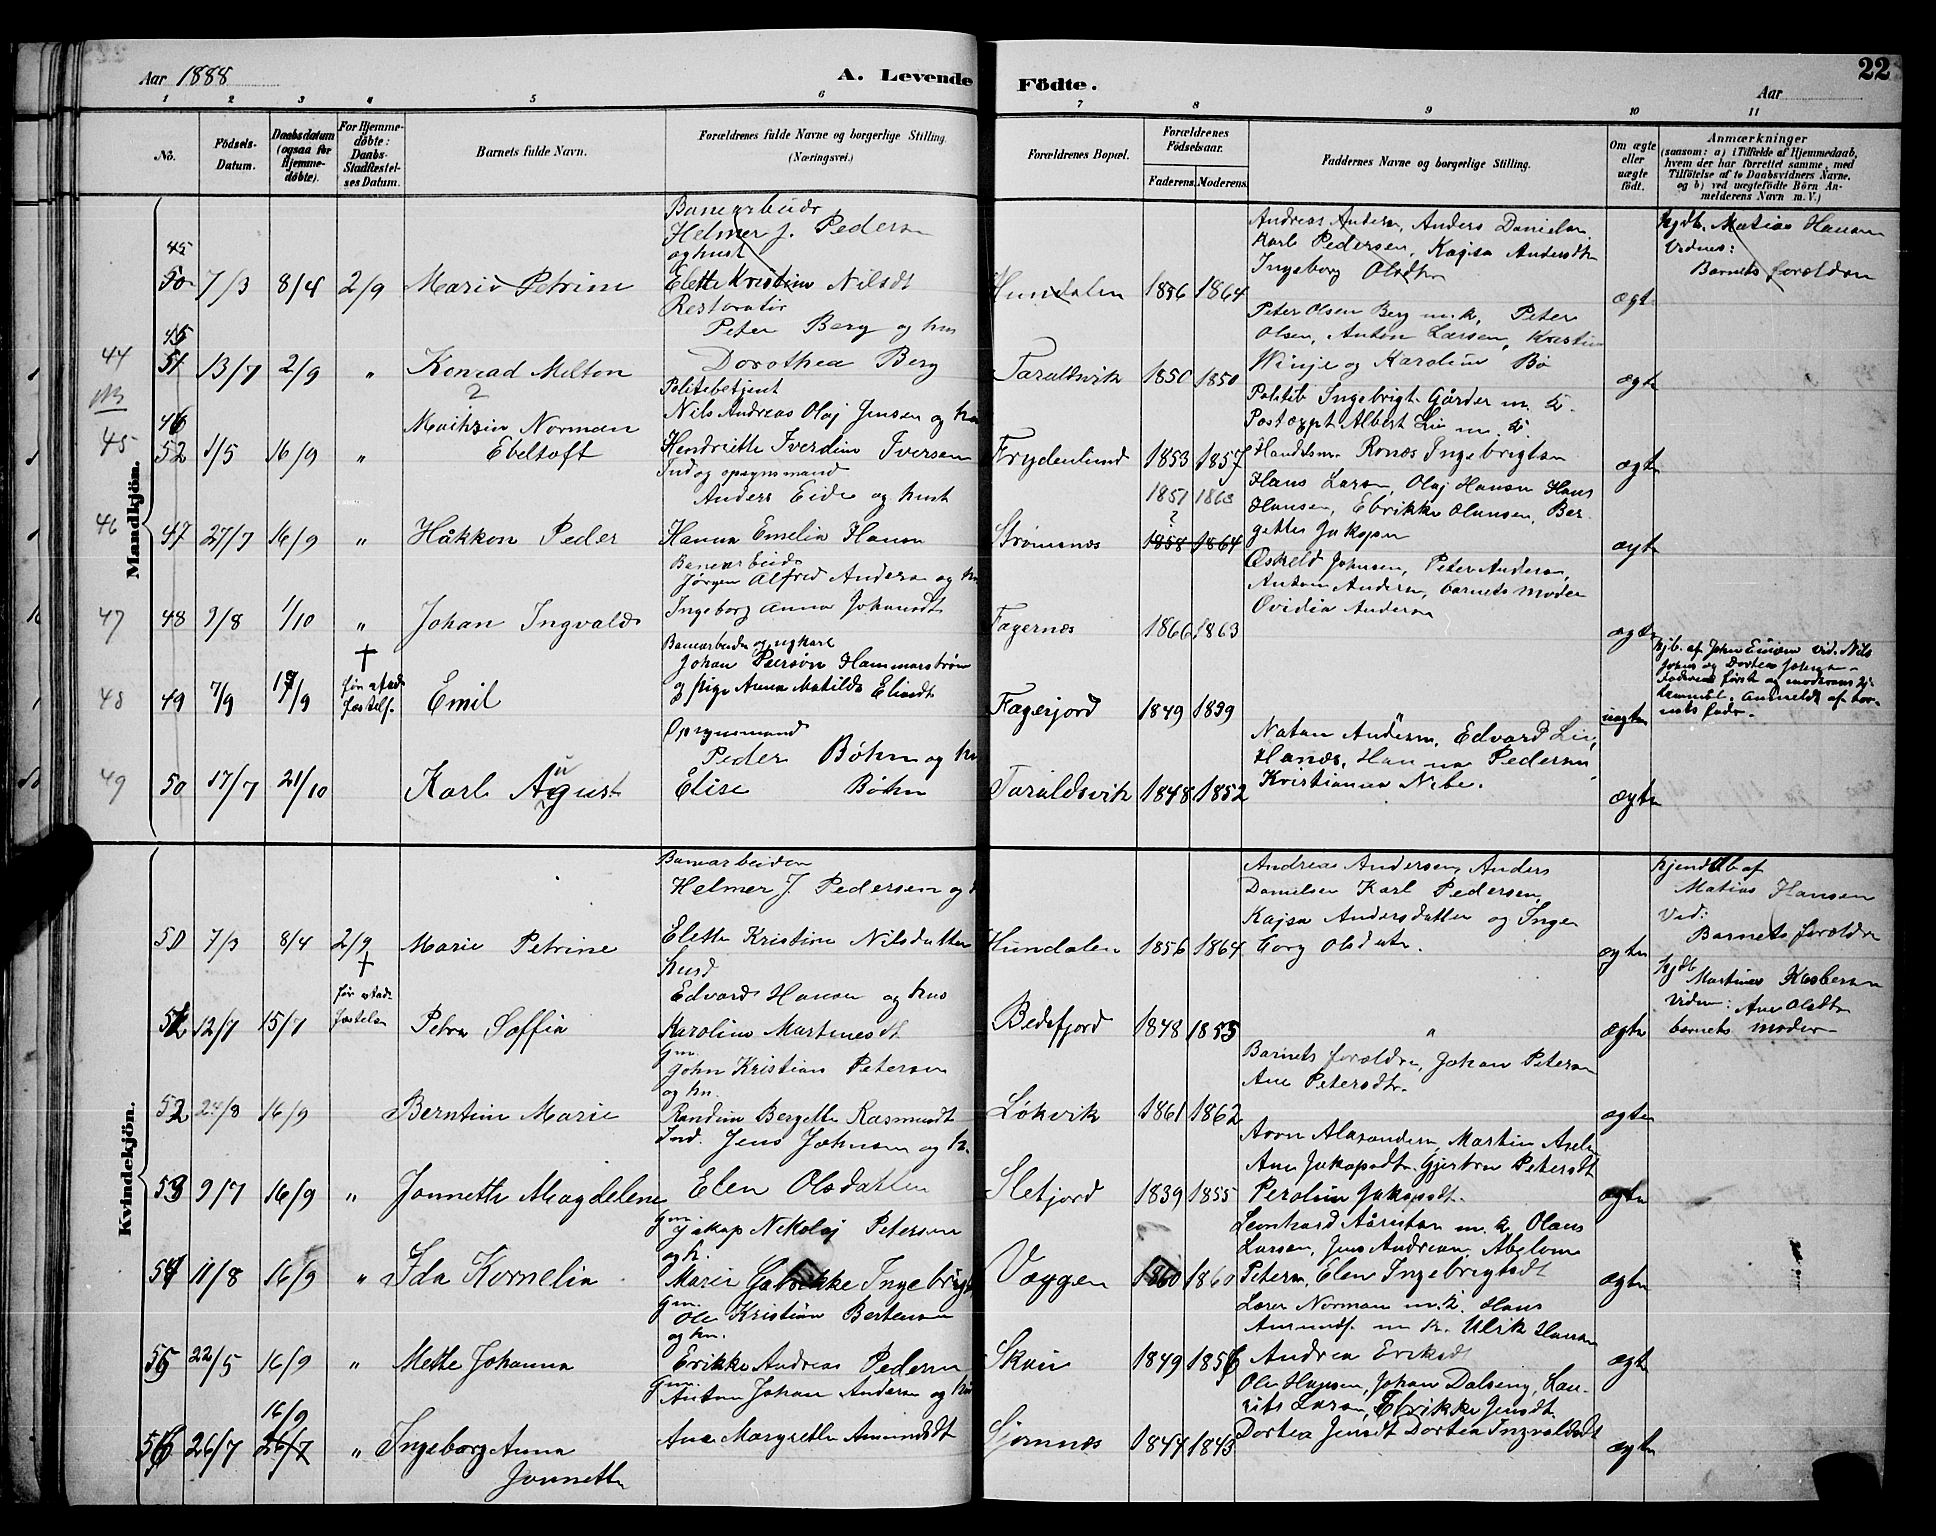 Aar 1888
A. Levende
Födte.
22
Aar
1 2 3 4 5 6 7 8 9 10 11
No.
Födsels-
Datum.
Daabsdatum
(ogsaa for
Hjemme-
døbte).
For Hjemme-
døbte:
Daabs-
Stadfæstel-
ses Datum.
Barnets fulde Navn.
Forældrenes fulde Navne og borgerlige Stilling.
(Næringsvei.)
Forældrenes Bopæl.
Forældrenes
Födselsaar.
Faderens. Moderens.
Faddernes Navne og borgerlige Stilling.
Om ægte
eller
uægte
födt.
Anmærkninger
(saasom: a) i Tilfælde af Hjemmedaab,
hvem der har forrettet samme, med
Tilföielse af to Daabsvidners Navne,
og b) ved uægtefödte Börn An-
melderens Navn m.V.)
Mandkjön.
45
50 7/3 8/4 2/9 Marie Petrine
Banearbeider
Helmer J. Pedersen
og hust
Elette Kristine Nilsdt
Hundalen 1856 1864
Andreas Andersen, Anders Danielsen
Karl Pedersen, Kajsa Andersdtr
Ingeborg Olsdtr
ægte
hjdb. Matias Hansen
Vidner:
Barnets forældre
44
45
51 13/7 2/9 " Konrad Milton
Restoratør
Peter Berg og hus
Dorothea Berg
Taraldsvik 1850 1850
Peter Olsen Berg m. k., Peter
Olsen, Anton Larsen, Kristin
Winje og Karoline Bø
ægte
45
46
52 1/5 16/9 " Mathzin Norman
Ebeltoft
Politibetjent
Nils Andreas Olaj Jensen og hu
Hendriette Iverdine Iversen
Frydenlund 1853 1857
Politib Ingebrigt Gårder m. k.
Postexpt Albert Lie m. k.
Handelsm. Ronæs Ingebrigtsen
ægte
46
47 27/7 16/9 " Håkkon Peder
Ind og opsynsmand
Anders Eide og hust
Hanna Emelia Hansen
Strømsnæs 1851 1863
?
1858 1864
Hans Larsen, Olaj Hansen Hans
Hansen, Ebrikke Hansen, Ber-
gette Jakopsen
ægte
47
48 9/8 1/10 " Johan Ingvald
Banearbeider
Jørgen Alfred Andersen og hu
Ingeborg Anna Johansdt
Fagernæs 1866 1863
Eskeld Johnsen, Peter Andersen,
Anton Andersen, barnets moder
Ovidia Andersen
ægte
48
49 7/9 17/9 † før stad-
fæstelse Emil
Banearbeider og ugkarl
Johan Persøn Hammarstrøm
og pige Anna Matilde Elisdt
Fagerjord 1849 1839
uægte
hjdb. af John Ensom vid. Nils
Johns og Dortea Johnsen
faderens første og moderens 2de
barnets fader.
49
50 17/7 21/10 Karl August
Opsynsmand
Peder Bøhn og hu
Elise Bøhn
Taraldsvik 1848 1852
Natan Andersen, Edvard Lie,
Hanæs, Hanna Pedersen,
Kristianna Nibe.
ægte
Kvindekjön.
50 7/3 8/4 2/9 Marie Petrine
Banearbeider
Helmer J Pedersen og
Elette Kristine Nilsdatter
Hundalen 1856 1864
Andreas Andersen, Anders
Danielsen Karl Pedersen,
Kajsa Andersdatter og Inge-
borg Olsdatr.
ægte
hjemdb af
Matias Hansen
Vid:
Barnets forældre
51 12/7 15/7 † før stad-
fæstelsen Petra Soffia
husd
Edvard Hansen og hus
Karoline Martinesdt
Bedefjord 1848 1853
"
ægte
hjdb Martines Kasbersen
Vidner: Ane Olsdtr
barnets moder
52 24/8 16/9 Berntine Marie
Gm.
John Kristian Petersen
og hu.
Randine Bergette Rasmusdt
Løkvik 1861 1862
Barnets forældre, Johan Petersen
Ane Petersdt.
ægte
53 9/7 16/9 " Jonnette Magdelene
Ind. Jens Johnsen og h.
Elen Olsdatter
Sletjord 1839 1855
Aron Alexandersen Martin Axels
Ane Jakopsdt. Gjertru Petersdt
Peroline Jakopsdt.
ægte
54 11/8 16/9 " Ida Kornelia
Gm Jakop Nekolaj Petersen
og h.
Marie Gabrikke Ingebrigt
Væggen 1860 1860
Leonhard Aårestan m. k. Olaus
Larsen, Jens Andreasen, Abelone
Petersen, Elen Ingebrigtsdt
ægte
55 22/5 16/9 " Mette Johanna
Gm. Ole Kristian Bertensen
og hu.
Erikke Andrea Pedersen
Skain 1849 1856
Lærer Norman m. k. Hans
Amundsen m k. Ulrik Hansen
Andrea Eriksdt
ægte
56 26/7 16/9 26/7 " Ingeborg Anna
Jonnette
Gm. Anton Johan Andersen og hu
Ane Margrette Amundsdt
Sjomnæs 1844 1843
Ole Hansen, Johan Dalseng, Lau-
rits Larsen, Ebrikke Jensdt
Dortea Jensdt Dortea Ingvaldsdt
ægte